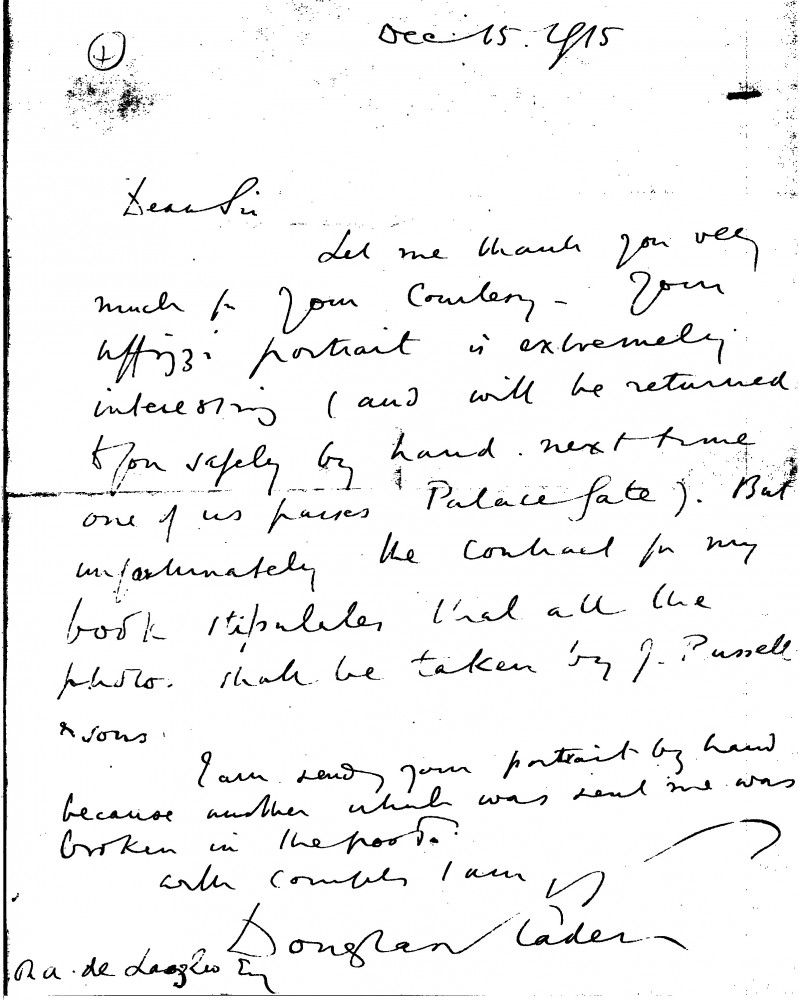 Dec 15. 1915
Dear Sir
Let me thank you very
much for your Courtesy - Your
Uffizzi portrait is extremely
interesting (and will be returned
to you safely by hand next time
one of us passes Palace Gate). But
unfortunately the contract for my
book stipulates that all the
photo. shall be taken by J. Russell
& sons.
I am sendg your portrait by hand
because another which was sent me was
broken in the post.
with compts I am
Douglas Sladen
P. A. de Laszlo Esq